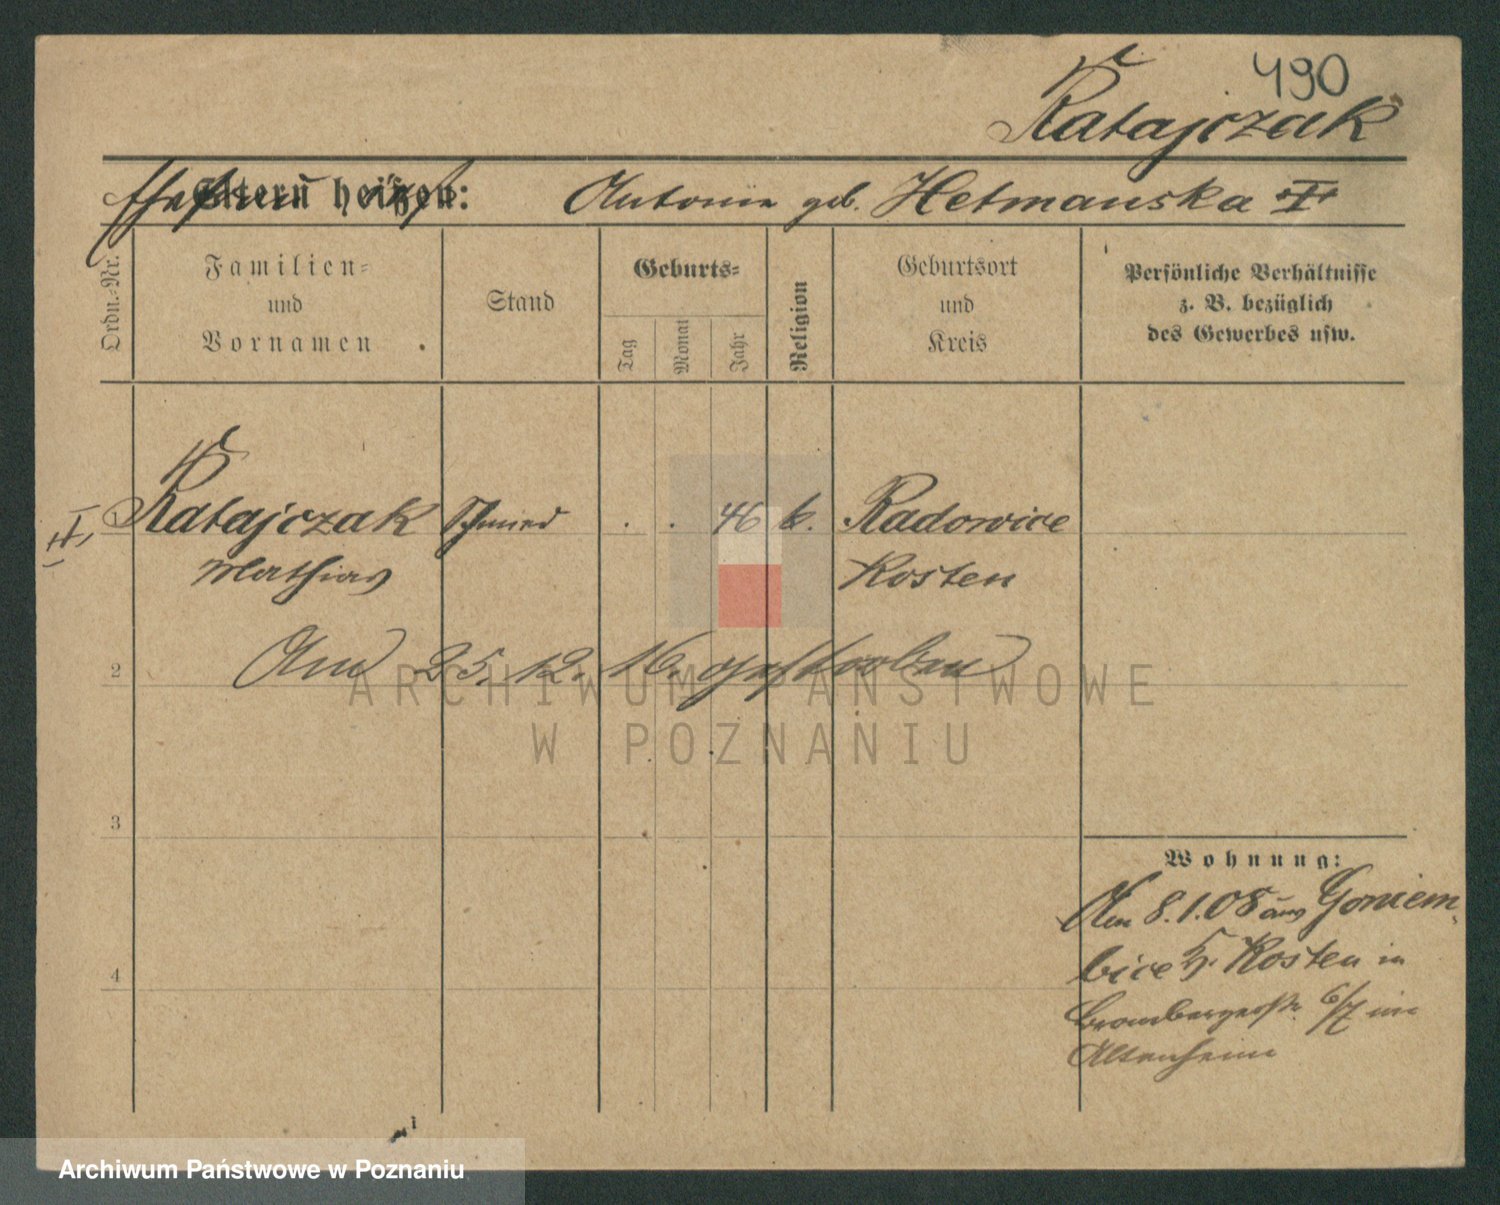 490
Ratajczak
Eltern heißen: Antonie geb. Hetmanska
Ordn.-Nr.
Familien-
und
Vornamen
Stand
Geburts-
Tag
Monat
Jahr
Religion
Geburtsort
und
Kreis
Persönliche Verhältnisse
z. B. bezüglich
des Gewerbes usw.
1 Ratajczak Schmied . . 46 k. Radowice
Mathias Kosten
Am 25. 12. 16. gestorben
2
3
4
Wohnung:
Am 8.1.08 aus Goniem-
bice Kosten in
Brombergerstr. 6/7 im
Altenheim
ARCHIWUM PAŃSTWOWE
W POZNANIU
Archiwum Państwowe w Poznaniu